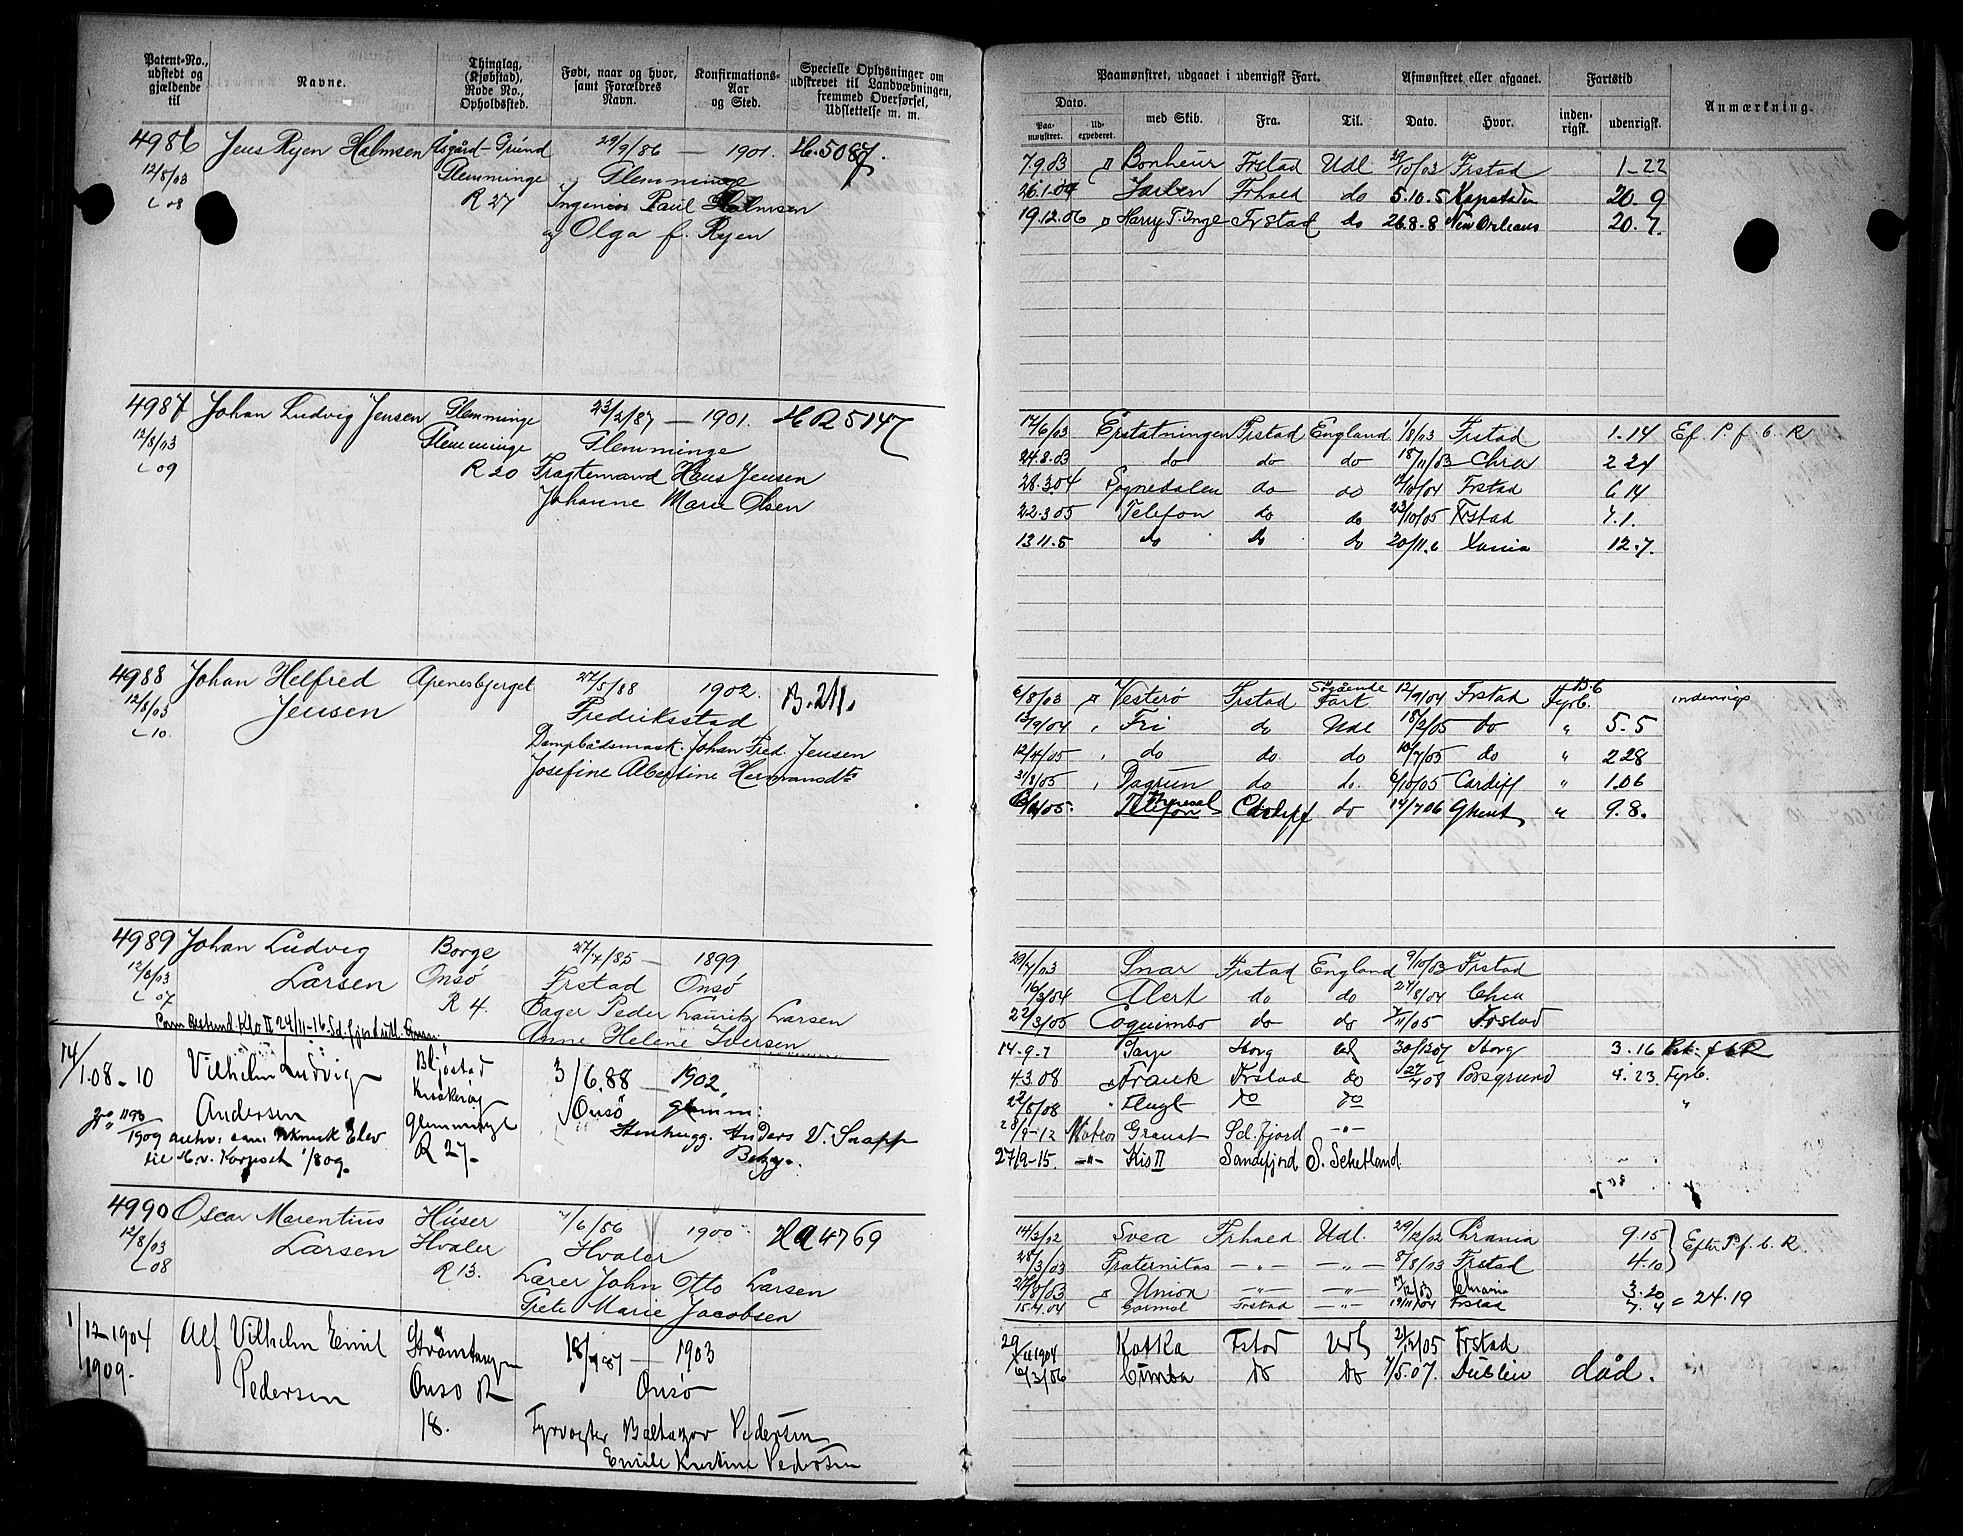 Patent-No., udstedt og gjældende til
Navne.
Thinglag, (Kjøbstad), Rode No., Opholdssted.
Født, naar og hvor, samt Forældres Navn.
Konfirmations-Aar og Sted.
Specielle Oplysninger om udskrevet til Landværningen, fremmed Overførsel, Udslettelse m. m.
Paamønstret, udgaaet i udenrigsk Fart.
Afmønstret eller afgaaet.
Fartstid
Anmærkning.
Dato.
Paa-mønstret. Ud-expederet. med Skib. Fra. Til. Dato. Hvor. inden-rigsk. udenrigsk.
4986 Jens Ryen Halmsen Åsgård-Grund 29/9/86 — 1901. H. 5087.
12/8/03 Glemminge Glemminge
L 08 R 27 Ingeniør Paul Halmsen
og Olga f. Ryen
7.9.03 Bonheur Frstad Udl 29/10/03 Frstad 1-22
26.1.04 Frhald do 5.10.5 Kapstaden 20.9
19.12.06 Harry T. Inge Frstad do 26.8.8 New Orleans 20.7.
4987 Johan Ludvig Jensen Glemminge 23/2/87 — 1901. H R 5147
12/8/03 Glemminge Glemminge
L 09 R 20 Fragtemand Hans Jensen
Johanne Marie Olsen
17/6/03 Erstatningen Frstad England 1/8/03 Frstad 1.14 Ef. P. f. b. R
24.8.03 do do do 18/11/03 Chra 2 24
28.3.04 Sognedalen do do /10/04 Frstad 6 14
22.3.05 Telefon do do 23/10/05 Frstad 7.1.
13 11.5 do do do 20/11.6 Xania 12.7.
4988 Johan Helfred Apenesbjerget 27/5/88 1902. B. 211.
12/8/03 Jensen Fredriksstad
L 10. Dampbådsmask. Johan Fred. Jensen
Josefine Albertine Hermansdtr
6/8/03 Vesterø Frstad Søgående Fart 12/9/04 Frstad Fyrb. indenrigs
13/9/04 Fri do Udl 18/2/05 do " 5.5
12/4/05 do do do 10/7/05 do " 2 28
31/8/05 Dagrun do do. 6/10/05 Cardiff " 1.06
Telefon Cardiff do 14/7 06 Ghent " 9.8.
4989 Johan Ludvig Borge 27/7/85 — 1899
12/8/03 Larsen Onsø Frstad Onsø
L 07 R 4. Bager Peder Lauritz Larsen
Anne Helene Iversen
24/11-16
29/7/03 Snar Frstad England 9/10/03 Frstad
16/3/04 Alert do do 27/8/04 Chra
22/3/05 Coquimbo do do /11/05 Frstad
14/1.08-10 Vilhelm Ludvig 3/6.88 — 1902
Andersen Onsø glemm:
Glemminge
R 27-
1909
14.9.7 30/12 07 3.16
4 3.08 Franck Frstad do 27/7 08 Porsgrund 4.23 Fyrb.
22/8/08 Flugt do do "
28/9-12 Matros Sd.fjord -"-
27/9-15. -"- Kis II Sandefjord S. Schetland
4990 Oscar Marentius Huser /6/86 1900 4769
12/8/03 Larsen Hvaler Hvaler
L 08 R 13. Lærer John Otto Larsen
Grete Marie Jacobsen
14/3/02 Svea Frhald Udl. 29/12/02 Chrania 9.15 Efter P. f. b. R.
28/3/03 Fraternitas -"- -"- 8/8/03 Frstad 4.10
Union -"- -"- Chrania 3.20
15.4.04 Gormol Frstad -"- 19/11/04 Frstad 7.4 = 24.19
1/12-1904 Alf Vilhelm Emil Strömtangen 18/ 87 — 1903
1909. Pedersen Onsø R Onsø
18. Fyrvogter Baltazar Pedersen
Emilie Kristine Pedersen
29/11 1904 Kotka Frstad Udl 2/ /05 Frstad
6/3/06 Cimba do do 7/5.07. Dublin död.